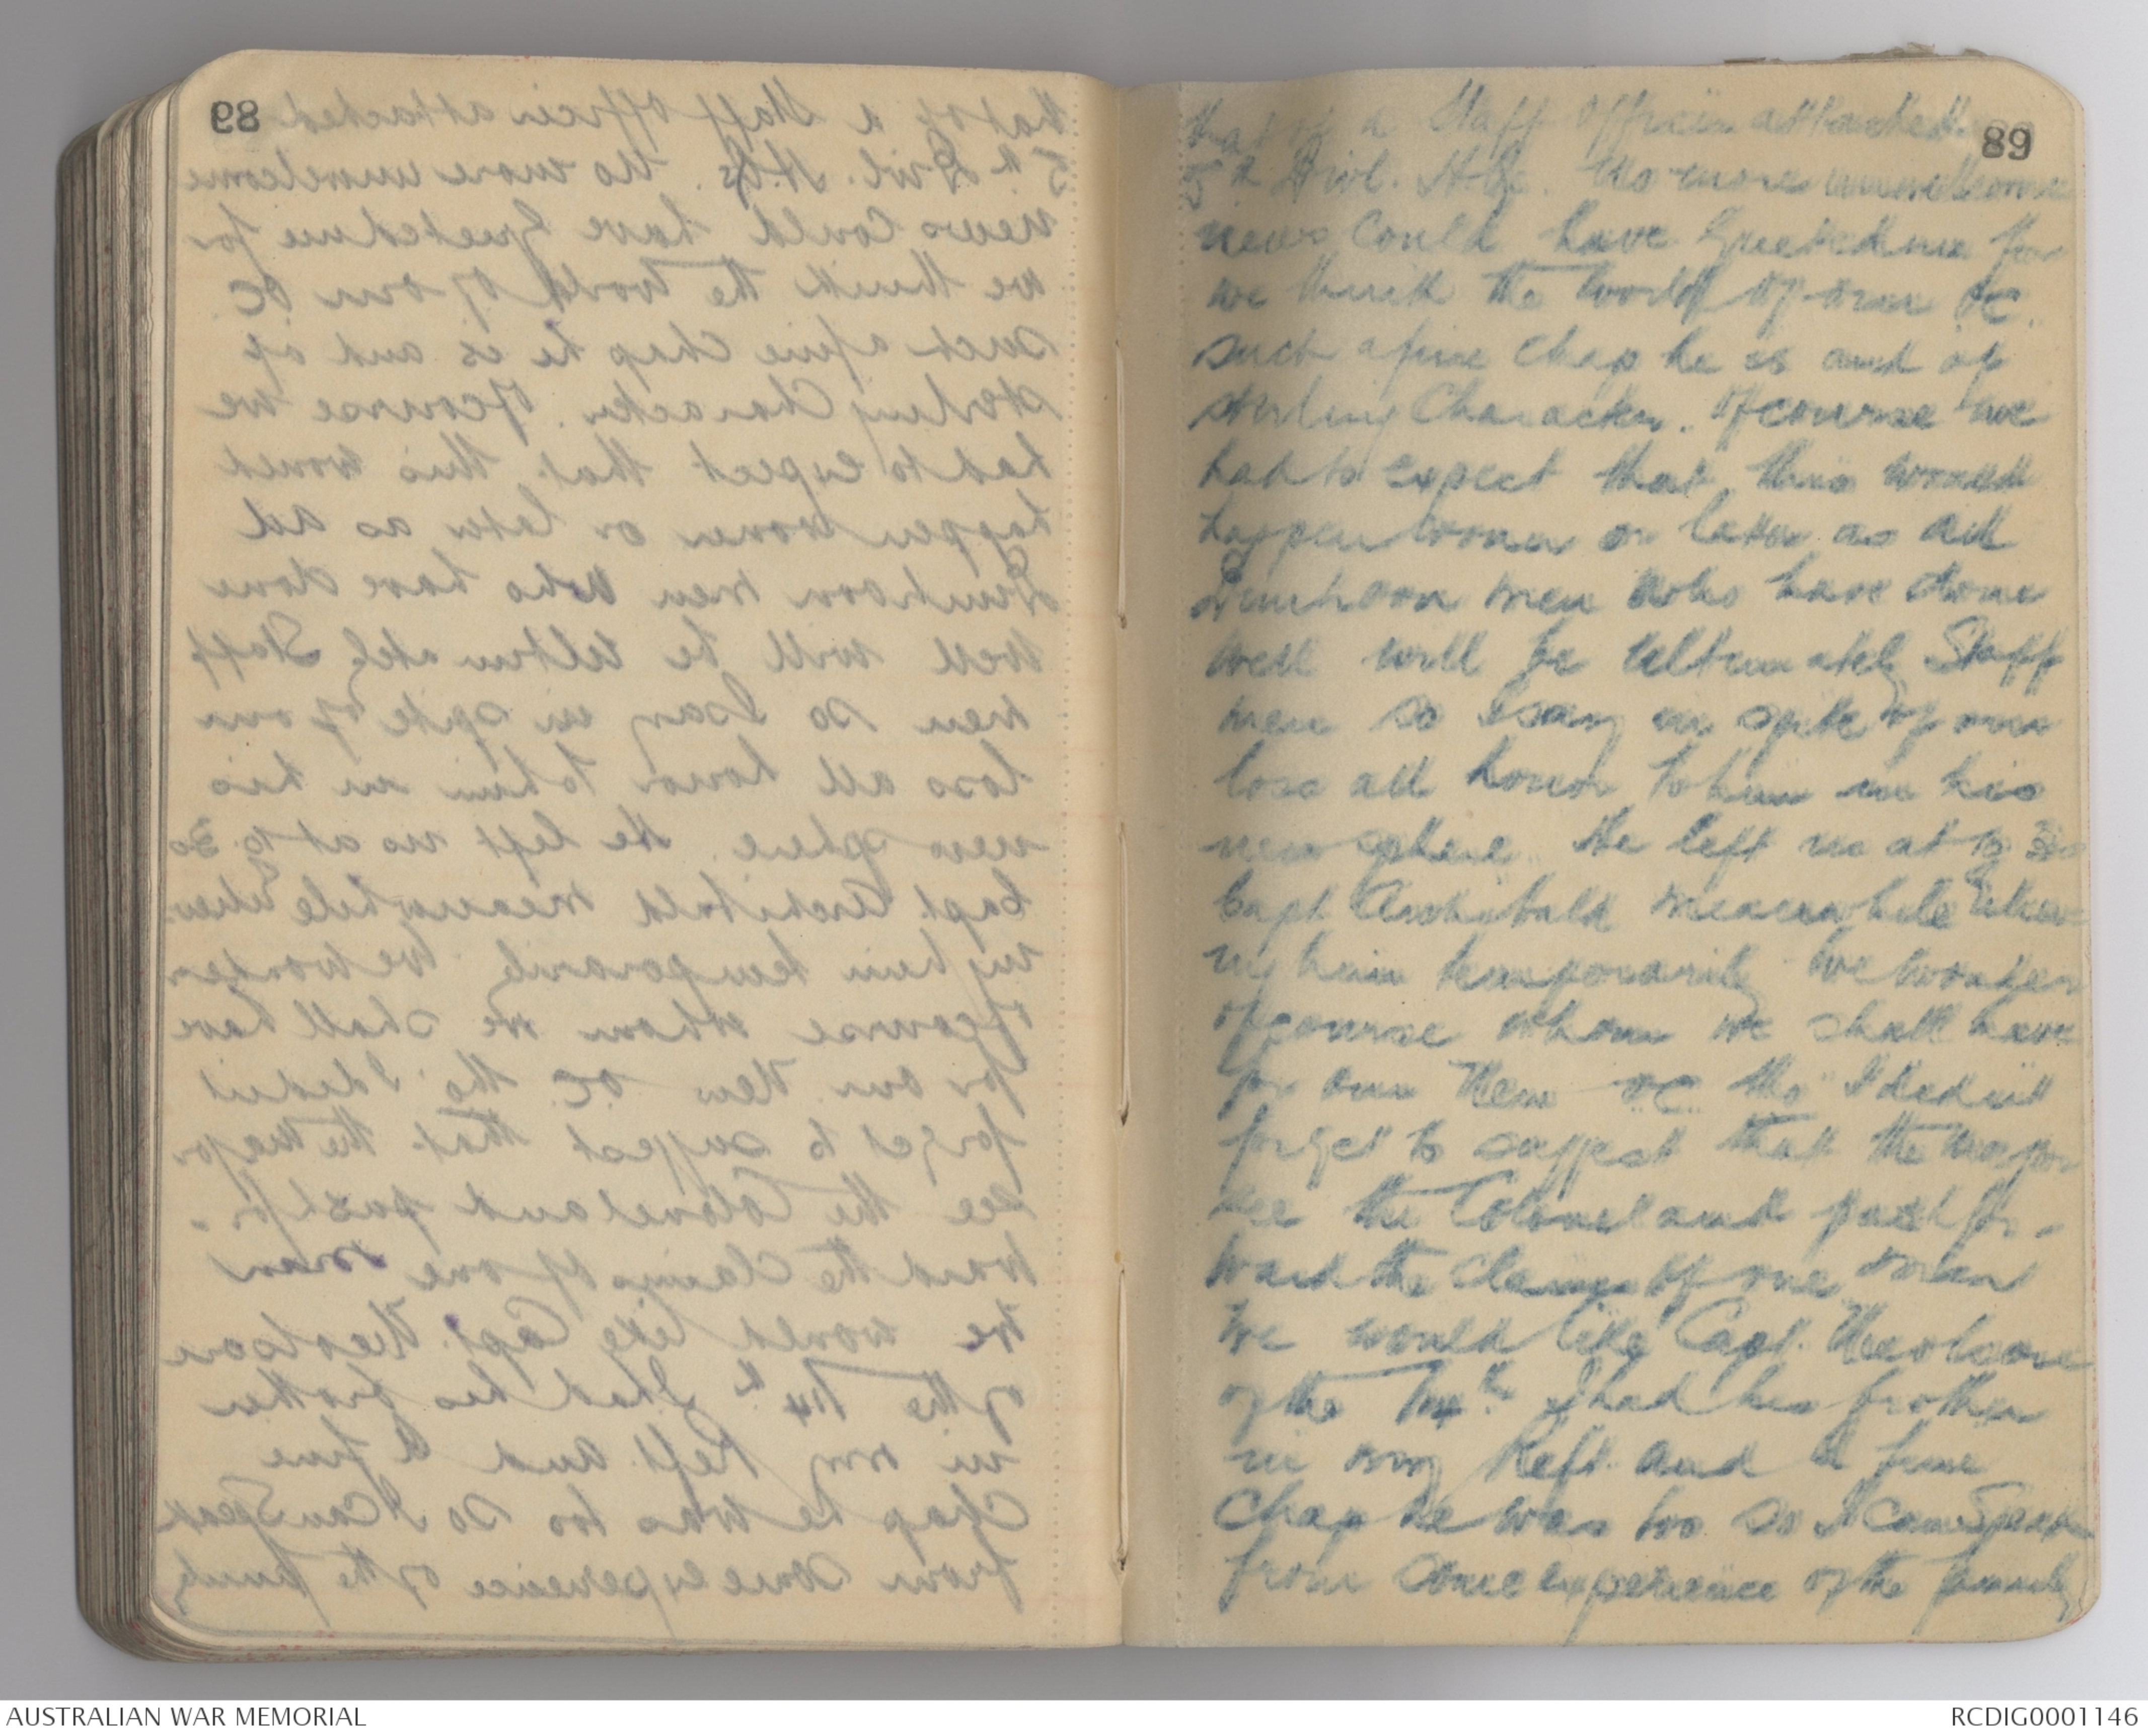 89
that of a Staff Officer attached
5th Divl. Hqs. No more unwelcome
news could have greeted me for
we think the world of our OC
such a fine chap he is and of
sterling Character. Of course we
had to expect that this would
happen sooner or later as all
Duntroon men who have done
well will be ultimately Staff
men so I say in spite of our
loss all honor to him in his
new sphere. He left us at 30
Capt. Archibald meanwhile reliev
ing him temporarily. We wonder
of course whom we shall have
for our New OC tho I didnt
forget to suggest that the Major
see the Colonel and push for-
ward the claims of one man
We would like Capt.
of the 14th I had his brother
in my Reft. and a fine
chap he was too so I can speak
from some experience of the family
AUSTRALIAN WAR MEMORIAL
RCDIG0001146